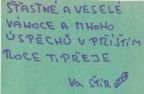 ŠŤASTNÉ A VESELÉ
VÁNOCE A MNOHO
ÚSPĚCHŮ V PŘÍŠTÍM
ROCE TI PŘEJE
VA ŠTÍR